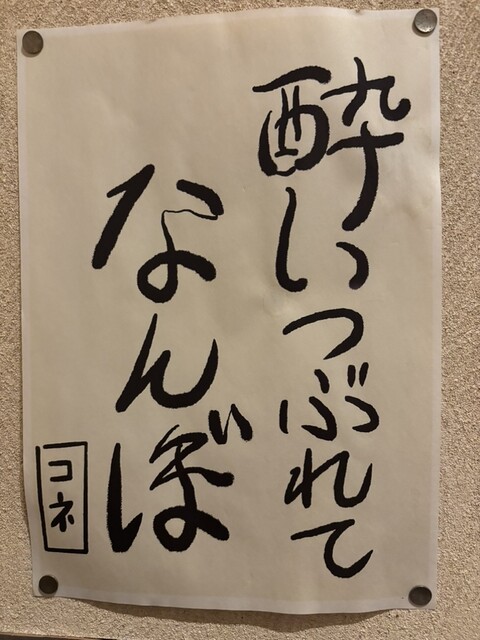 酔いつぶれて
なんぼ
コネ